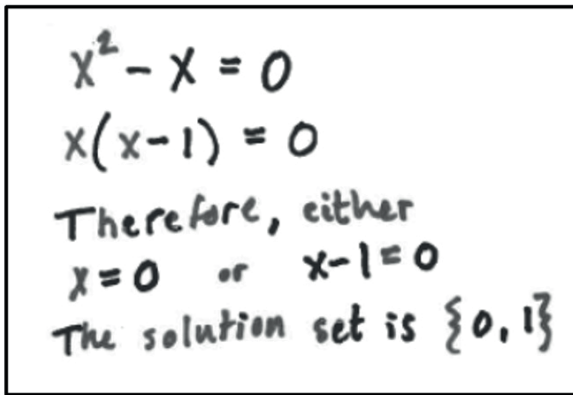 x² - x = 0
x(x-1) = 0
Therefore, either
x = 0 or x-1 = 0
The solution set is {0, 1}